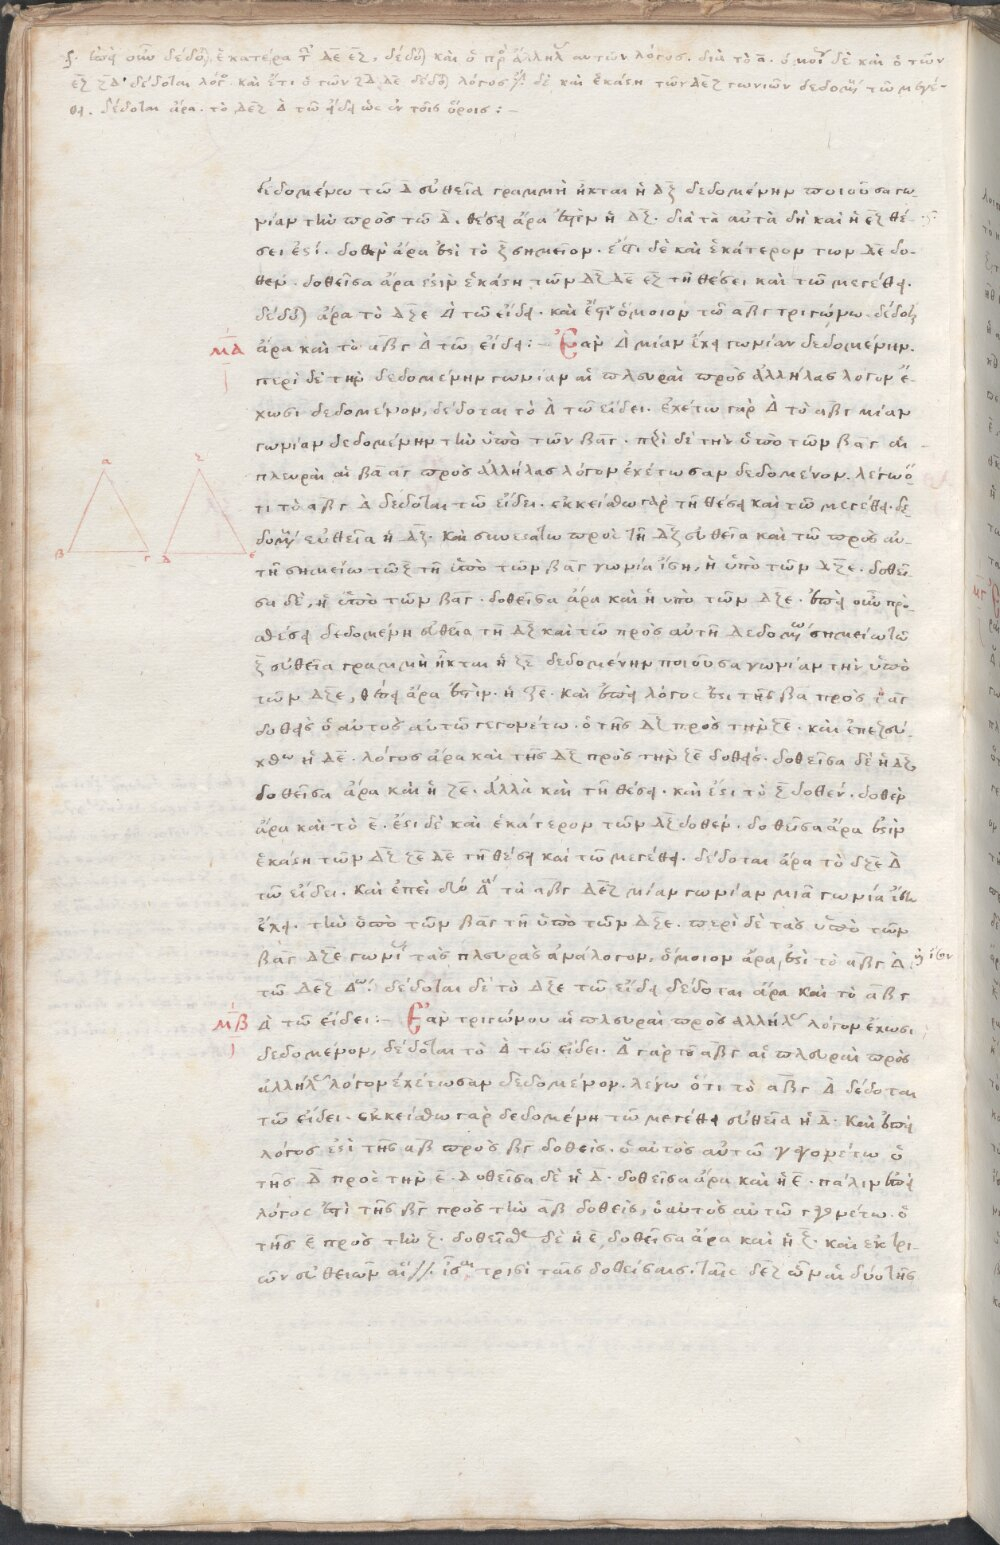 ἐπεὶ οὖν δέδο) ἑκατέρα τ ΔΕ ΕΖ, δέδο) καὶ ὁ πρ ἀλλήλ αὐτῶν λόγος. διὰ τὸ α. ὁμοί δὲ καὶ ὁ τῶν
ΕΖ ΖΔ δέδοται λόγ. καὶ ἔτι ὁ τῶν ΖΔ ΔΕ δέδο) λόγος δὲ καὶ ἑκάστη τῶν ΔΕΖ γωνιῶν δεδομ τῶ μεγέ-
θει. δέδοται ἄρα τὸ ΔΕΖ Δ τῶ εἴδει ὡς ἐν τοῖς ὅροις :-
δεδομένω τῶ Δ εὐθεῖα γραμμὴ ἦκται ἡ ΔΖ δεδομένην ποιοῦσα γω-
νίαν τὴν πρὸς τῶ Δ. θέσει ἄρα ἐστὶν ἡ ΔΖ. διὰ τὰ αὐτὰ δὴ καὶ ἡ ΕΖ θέ-
σει ἐστί. δοθὲν ἄρα ἐστὶ τὸ Ζ σημεῖον. ἔστι δὲ καὶ ἑκάτερον των ΔΕ δο-
θέν. δοθεῖσα ἄρα ἐστὶν ἑκάστη τῶν ΔΖ ΔΕ ΕΖ τῆ θέσει καὶ τῶ μεγέθει.
δέδο) ἄρα τὸ ΔΖΕ Δ τῶ εἴδει. καὶ ἔστιν ὅμοιον τῶ ΑΒΓ τριγώνω. δέδοται
ΜΑ ἄρα καὶ τὸ ΑΒΓ Δ τῶ εἴδει :- Ἐὰν Δ μίαν ἔχη γωνίαν δεδομένην.
περὶ δὲ τὴν δεδομένην γωνίαν αἱ πλευραὶ πρὸς ἀλλήλας λόγον ἔ-
χωσι δεδομένον, δέδοται τὸ Δ τῶ εἴδει. ἐχέτω γὰρ Δ τὸ ΑΒΓ μίαν
γωνίαν δεδομένην τὴν ὑπὸ τῶν ΒΑΓ. περὶ δὲ τὴν ὑπὸ τῶν ΒΑΓ αἱ
πλευραὶ αἱ ΒΑ ΑΓ πρὸς ἀλλήλας λόγον ἐχέτωσαν δεδομένον. λέγω ὅ
τι τὸ ΑΒΓ Δ δέδοται τῶ εἴδει. ἐκκείσθω γὰρ τῆ θέσει καὶ τῶ μεγέθει. δε
δομ εὐθεῖα ἡ ΔΖ. καὶ συνεστάτω πρὸς τῆ ΔΖ εὐθεῖα καὶ τῶ πρὸς αὐ-
τῆ σημείω τῶ Ζ τῆ ὑπὸ τῶν ΒΑΓ γωνία ἴση, ἡ ὑπὸ τῶν ΔΖΕ. δοθεῖ-
σα δὲ, ἡ ὑπὸ τῶν ΒΑΓ. δοθεῖσα ἄρα καὶ ἡ ὑπὸ τῶν ΔΖΕ. ἐπεὶ οὖν πρὸ-
θέσει δεδομένη εὐθεῖα τῆ ΔΖ καὶ τῶ πρὸς αὐτῆ δεδομ σημείω τῶ
Ζ εὐθεῖα γραμμὴ ἦκται ἡ ΖΕ δεδομένην ποιοῦσα γωνίαν τὴν ὑπὸ
τῶν ΔΖΕ, θέσει ἄρα ἐστὶν ἡ ΖΕ. καὶ ἐπεὶ λόγος ἐστι τῆς ΒΑ πρὸς ΑΓ
δοθεὶς ὁ αὐτὸς αὐτῶ γεγονέτω. ὁ τῆς ΔΖ πρὸς τὴν ΖΕ. καὶ ἐπεζεύ-
χθω ἡ ΔΕ. λόγος ἄρα καὶ τῆς ΔΖ πρὸς τὴν ΖΕ δοθείς. δοθεῖσα δὲ ἡ ΔΖ
δοθεῖσα ἄρα καὶ ἡ ΖΕ. ἀλλὰ καὶ τῆ θέσει. καὶ ἔστι τὸ Ζ δοθέν. δοθὲν
ἄρα καὶ τὸ Ε. ἔστι δὲ καὶ ἑκάτερον τῶν ΔΖ δοθέν. δοθεῖσα ἄρα ἐστὶν
ἑκάστη τῶν ΔΖ ΖΕ ΔΕ τῆ θέσει καὶ τῶ μεγέθει. δέδοται ἄρα τὸ ΔΖΕ Δ
τῶ εἴδει. καὶ ἐπεὶ δύο Δ τὰ ΑΒΓ ΔΕΖ μίαν γωνίαν μιᾶ γωνία ἴσην
ἔχει. τὴν ὑπὸ τῶν ΒΑΓ τῆ ὑπὸ τῶν ΔΖΕ. περὶ δὲ τὰς ὑπὸ τῶν
ΒΑΓ ΔΖΕ γωνί τὰς πλευρὰς ἀνάλογον, ὅμοιον ἄρα ἐστὶ τὸ ΑΒΓ Δ
τῶ ΔΕΖ Δω. δέδοται δὲ τὸ ΔΖΕ τῶ εἴδει δέδοται ἄρα καὶ τὸ ΑΒΓ
ΜΒ Δ τῶ εἴδει :- Ἐὰν τριγώνου αἱ πλευραὶ πρὸς ἀλλήλ λόγον ἔχωσι
δεδομένον, δέδοται τὸ Δ τῶ εἴδει. Δ γὰρ τοῦ ΑΒΓ αἱ πλευραὶ πρὸς
ἀλλήλ λόγον ἐχέτωσαν δεδομένον. λέγω ὅτι τὸ ΑΒΓ Δ δέδοται
τῶ εἴδει. ἐκκείσθω γὰρ δεδομένη τῶ μεγέθει εὐθεῖα ἡ Δ. καὶ ἐπεὶ
λόγος ἐστὶ τῆς ΑΒ πρὸς ΒΓ δοθεὶς. ὁ αὐτὸς αὐτῶ γεγονέτω ὁ
τῆς Δ πρὸς τὴν Ε. δοθεῖσα δὲ ἡ Δ. δοθεῖσα ἄρα καὶ ἡ Ε. πάλιν ἐπεὶ
λόγος ἐστὶ τῆς ΒΓ πρὸς τὴν ΑΒ δοθεὶς, ὁ αὐτὸς αὐτῶ γεγονέτω. ὁ
τῆς Ε πρὸς τὴν Ζ. δοθεῖσα δὲ ἡ Ε, δοθεῖσα ἄρα καὶ ἡ Ζ. καὶ ἐκ τρι-
ῶν εὐθειῶν αἵ εἰσιν ἴσαι τρισὶ ταῖς δοθείσαις. ταῖς ΔΕΖ ὧν αἱ δύο τῆς
Α Β Γ
Ζ Δ Ε